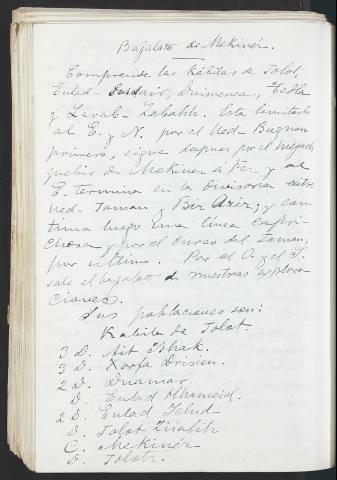 Bajalato de Mekinéz.
Comprende las kábilas de Tolot,
Eulad- Duimenea, Tedla
y Zerab- Zabahh. Esta limitado
al E. y N. por el Ued- Bugnon
primero, sigue despues por el
quebir de Mekinez á Fez y al
E. termina en la divisoria entre
Ued- Taman y Bir Aziz; y con-
tinua luego una linea capri-
chosa y por el curso del Taman,
por ultimo. Por el O. y el S.
sale el bajalato de nuestras explora-
ciones.
Sus poblaciones son:
Kabila de Tolot.
3 D. Ait Ishak.
3 D. Xorfa Drisien.
2 D. Duamar.
D. Eulad Alhameid.
2 D. Eulad Ielud
D. Tolot Ziialih
C. Mekinéz
D. Tolotz.